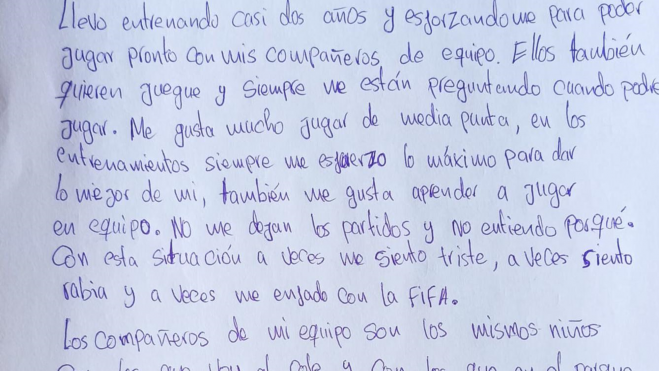 Llevo entrenando casi dos años y esforzandome para poder
jugar pronto con mis compañeros de equipo. Ellos también
quieren juegue y siempre me están preguntando cuando podre
jugar. Me gusta mucho jugar de media punta, en los
entrenamientos siempre me esfuerzo lo máximo para dar
lo mejor de mi, también me gusta aprender a jugar
en equipo. No me dejan los partidos y no entiendo porqué.
Con esta situación a veces me siento triste, a veces siento
rabia y a veces me enfado con la FIFA.
Los compañeros de mi equipo son los mismos niños